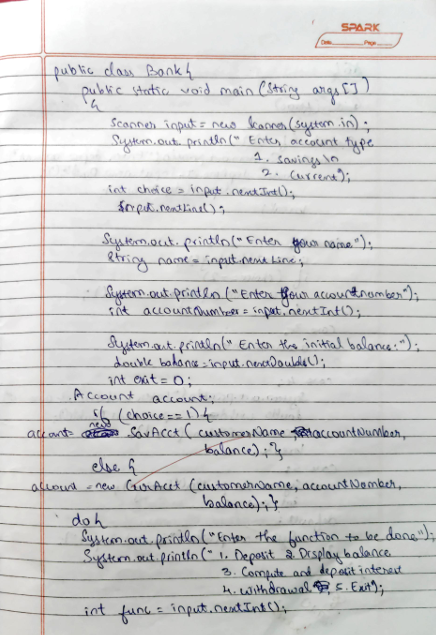 SPARK
Date Page
public class Bank{
public static void main (String args[])
{
Scanner input = new Scanner(system.in);
System.out.println(" Enter account type
1. savings \n
2. Current");
int choice = input.nextInt();
input.nextLine();
System.out.println("Enter your name");
String name = input.nextLine;
System.out.println("Enter your account number");
int accountNumber = input.nextInt();
System.out.println(" Enter the initial balance:");
double balance = input.nextDouble();
int exit = 0;
Account account;
if (choice==1){
account= new SavAcct (customerName accountNumber,
balance); }
else {
account = new CurAcct (customerName, accountNumber,
balance); }
do {
System.out.println("Enter the function to be done");
System.out.println(" 1. Deposit 2 Display balance
3. Compute and deposit interest
4. withdrawal 5. Exit");
int func = input.nextInt();